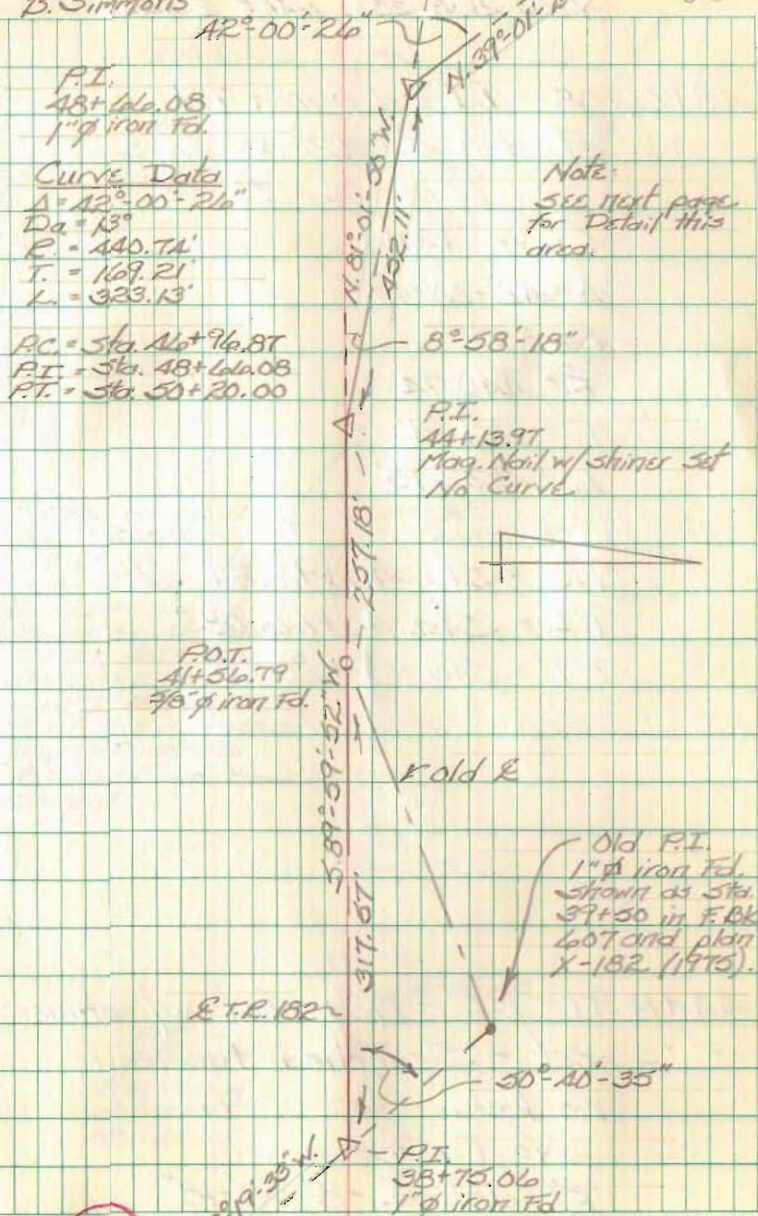 B. Simmons
42°-00'-26"
N. 39°-01'-
P.I.
48+66.08
1"ø iron Fd.
Curve Data
Δ = 42°-00'-26"
Da = 13°
R. = 440.74'
T. = 169.21'
L. = 323.13'
P.C. = Sta. 46+96.87
P.I. = Sta. 48+66.08
P.T. = Sta. 50+20.00
Note:
see next page
for Detail this
area.
N. 81°-01'-50" W.
452.11'
8°-58'-18"
P.I.
44+13.97
Mag. Nail w/ shiner set
No Curve
257.18'
P.O.T.
41+56.79
5/8" ø iron Fd.
S. 89°-59'-52" W.
old ℄
317.57'
Old P.I.
1"ø iron Fd.
shown as Sta.
39+50 in F.Bk
607 and plan
X-182 (1975).
℄ T.R. 182
50°-40'-35"
P.I.
38+75.06
1"ø iron Fd
°19'-33" W.